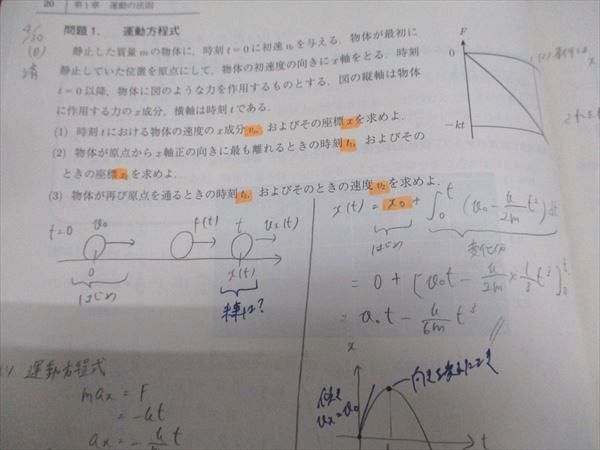 20 第1章 運動の法則
4/30
問題1. 運動方程式
静止した質量mの物体に、時刻t=0に初速v₀を与える. 物体が最初に
静止していた位置を原点にして、物体の初速度の向きにx軸をとる. 時刻
t=0以降、物体に図のような力を作用するものとする. 図の縦軸は物体
に作用する力のx成分、横軸は時刻tである.
(1) 時刻tにおける物体の速度のx成分vₓ, およびその座標xを求めよ.
(2) 物体が原点からx軸正の向きに最も離れるときの時刻t₁, およびその
ときの座標x₁を求めよ.
(3) 物体が再び原点を通るときの時刻t₂, およびそのときの速度v₂を求めよ.
F
0
-kt
t=0
v₀
f(t)
t
vₓ(t)
0
x(t)
はじめ
x(t) = x₀ + ∫₀ᵗ (v₀ - k/2m t²) dt
はじめ
変化分
= 0 + [v₀t - k/2m × 1/3 t³]₀ᵗ
= v₀t - k/6m t³
運動方程式
maₓ = F
= -kt
aₓ = - k/m t
x
傾き
vₓ=v₀
t